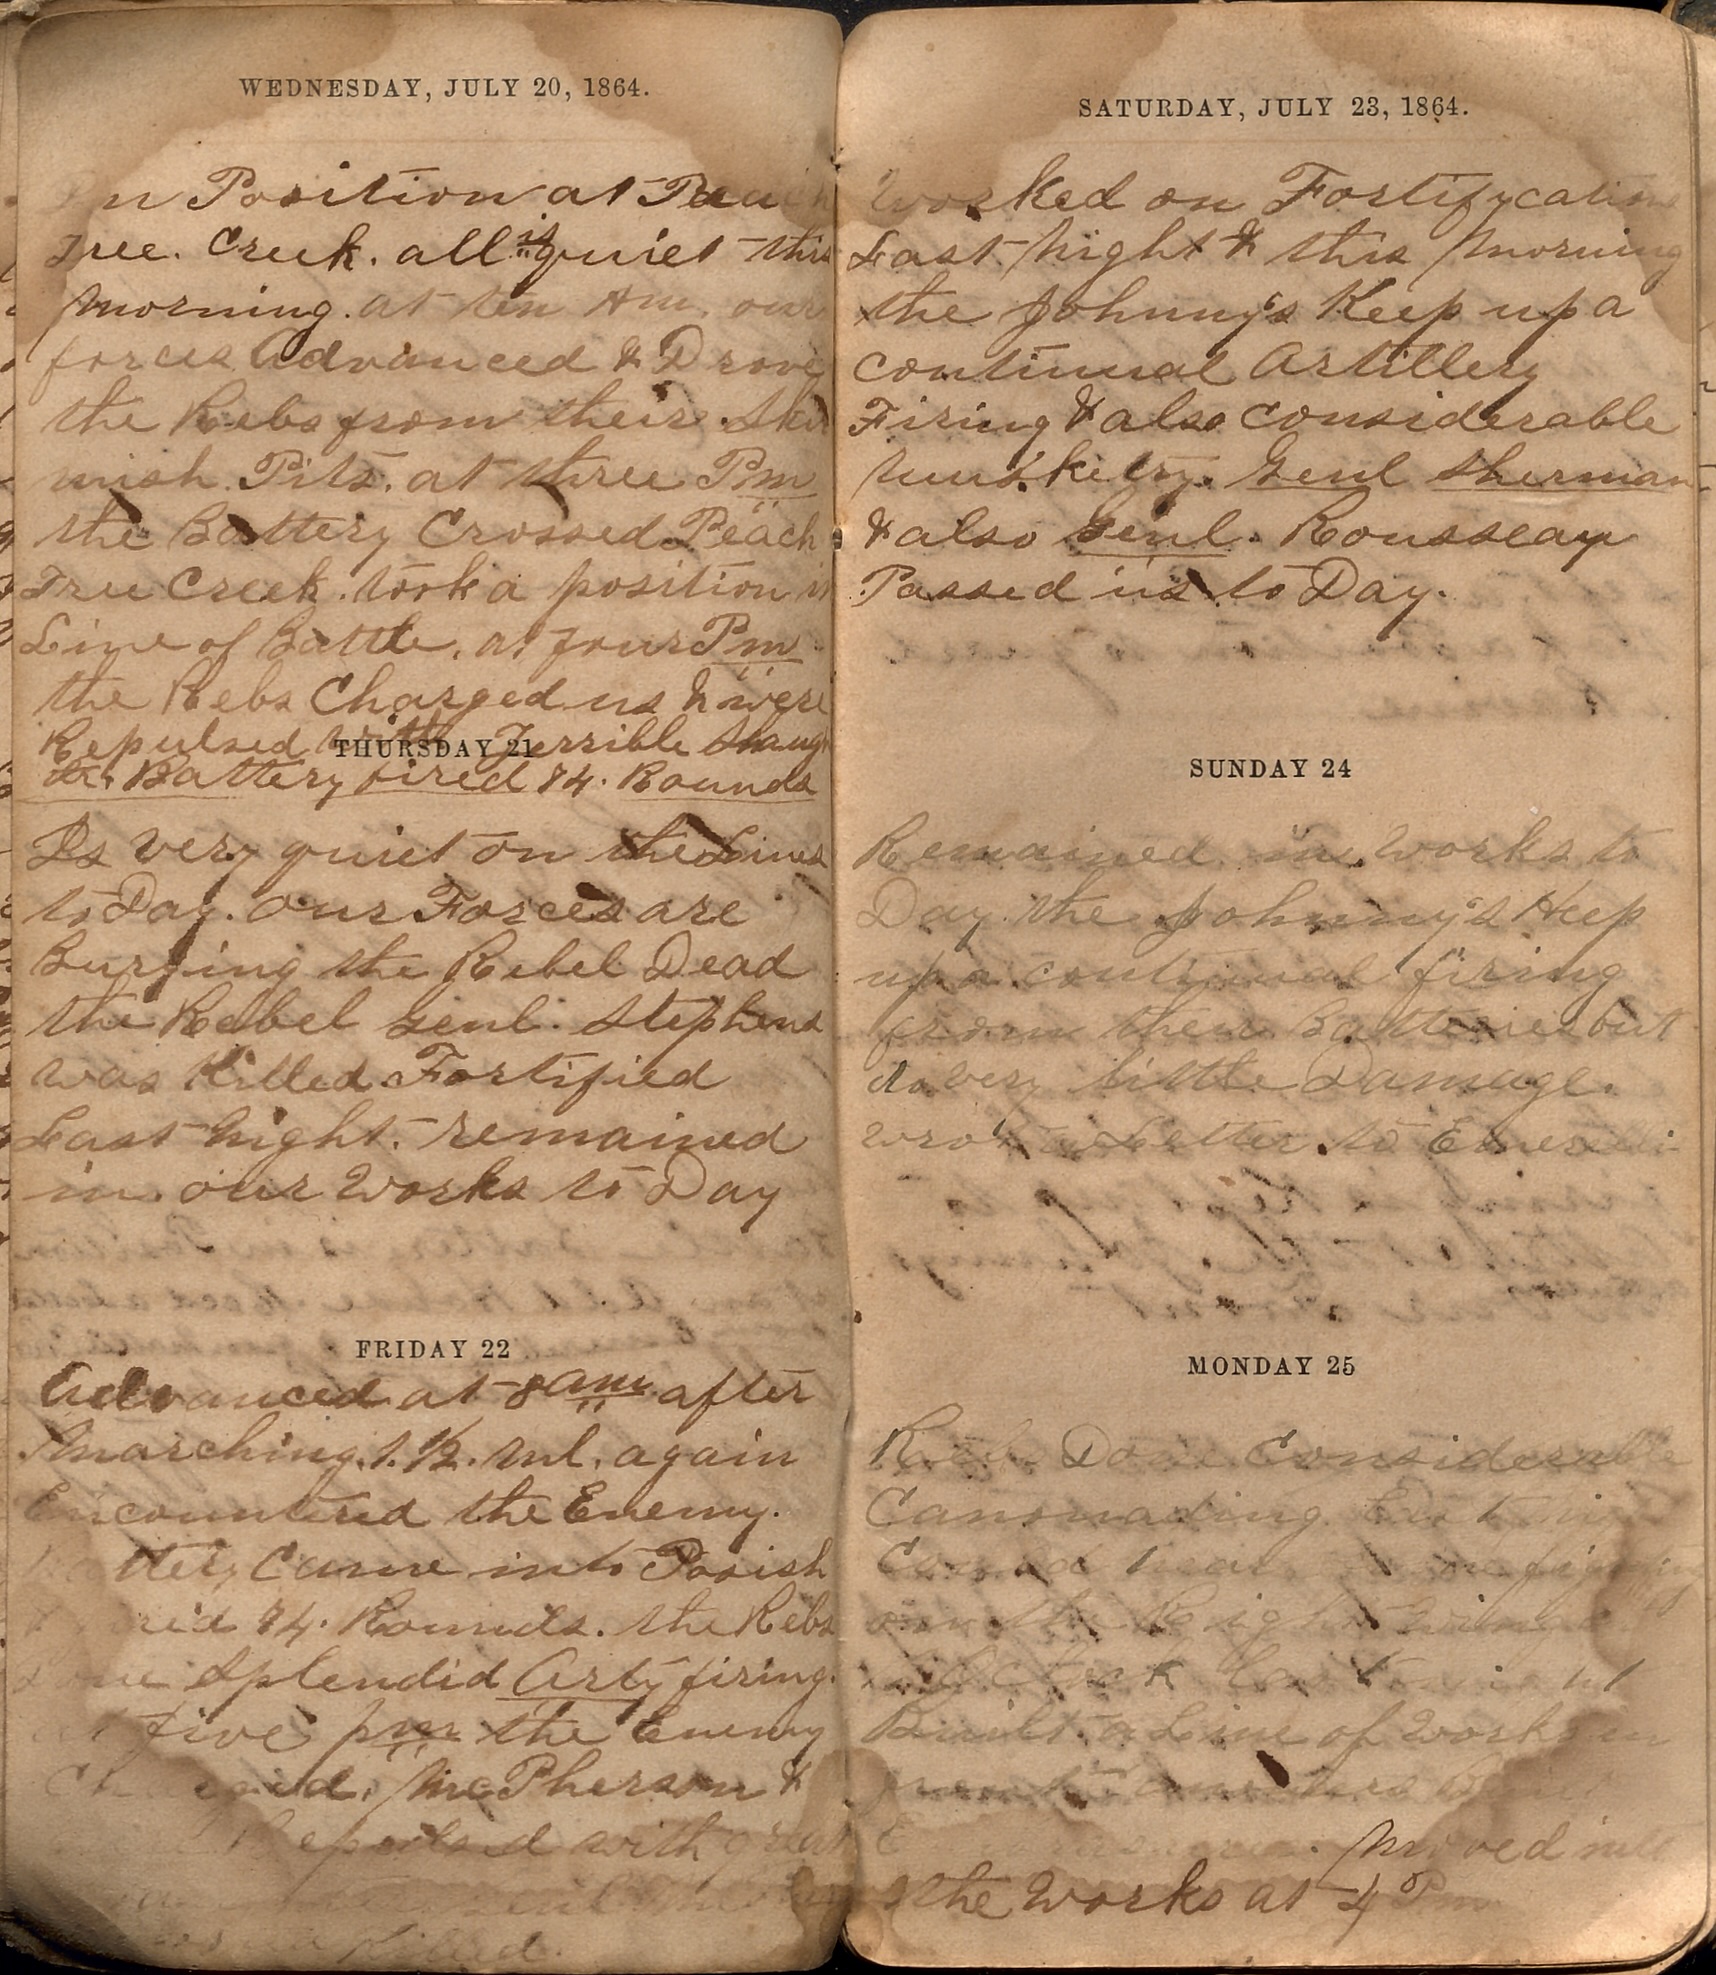 WEDNESDAY, JULY 20, 1864.
In Position at Peach
Tree. Creek. all is quiet this
Morning. at ten Am. our
forces advanced & Drove
the Rebs from their Skir
mish Pits. at three Pm
the Battery Crossed Peach
Tree Creek. took a position in
Line of Battle. at four Pm
the Rebs Charged us & were
Repulsed with Terrible Slaugh
ter. Battery fired 84. Rounds
THURSDAY 21
Is very quiet on the Lines
to Day. our Forces are
Burying the Rebel Dead
the Rebel Genl. Stephens
was Killed. Fortified
Last Night. remained
in our Works to Day
FRIDAY 22
Advanced at 8 am. after
Marching. 1. 1/2. Ml. again
Encountered the Enemy.
Battery Came into Posish
fired 84. Rounds. the Rebs
done Splendid Arty firing.
at five pm the Enemy
Charged. McPherson &
Repulsed with great
Genl
was Killed.
SATURDAY, JULY 23, 1864.
Worked on Fortifycations
Last Night & this Morning
the Johnny's Keep up a
continual Artillery
Firing & also considerable
Musketry. Genl Sherman
& also Genl. Rousseau
Passed us to Day.
SUNDAY 24
Remained in Works to
Day. the Johnny's Keep
up a continual firing
from their Batteries but
do very little Damage.
wrote a Letter to
MONDAY 25
Rebs Done Considerable
Cannonading Last night
Could hear
on the Right Wing
O Clock
Built a Line of Works in
front
Moved into
the Works at 4 Pm